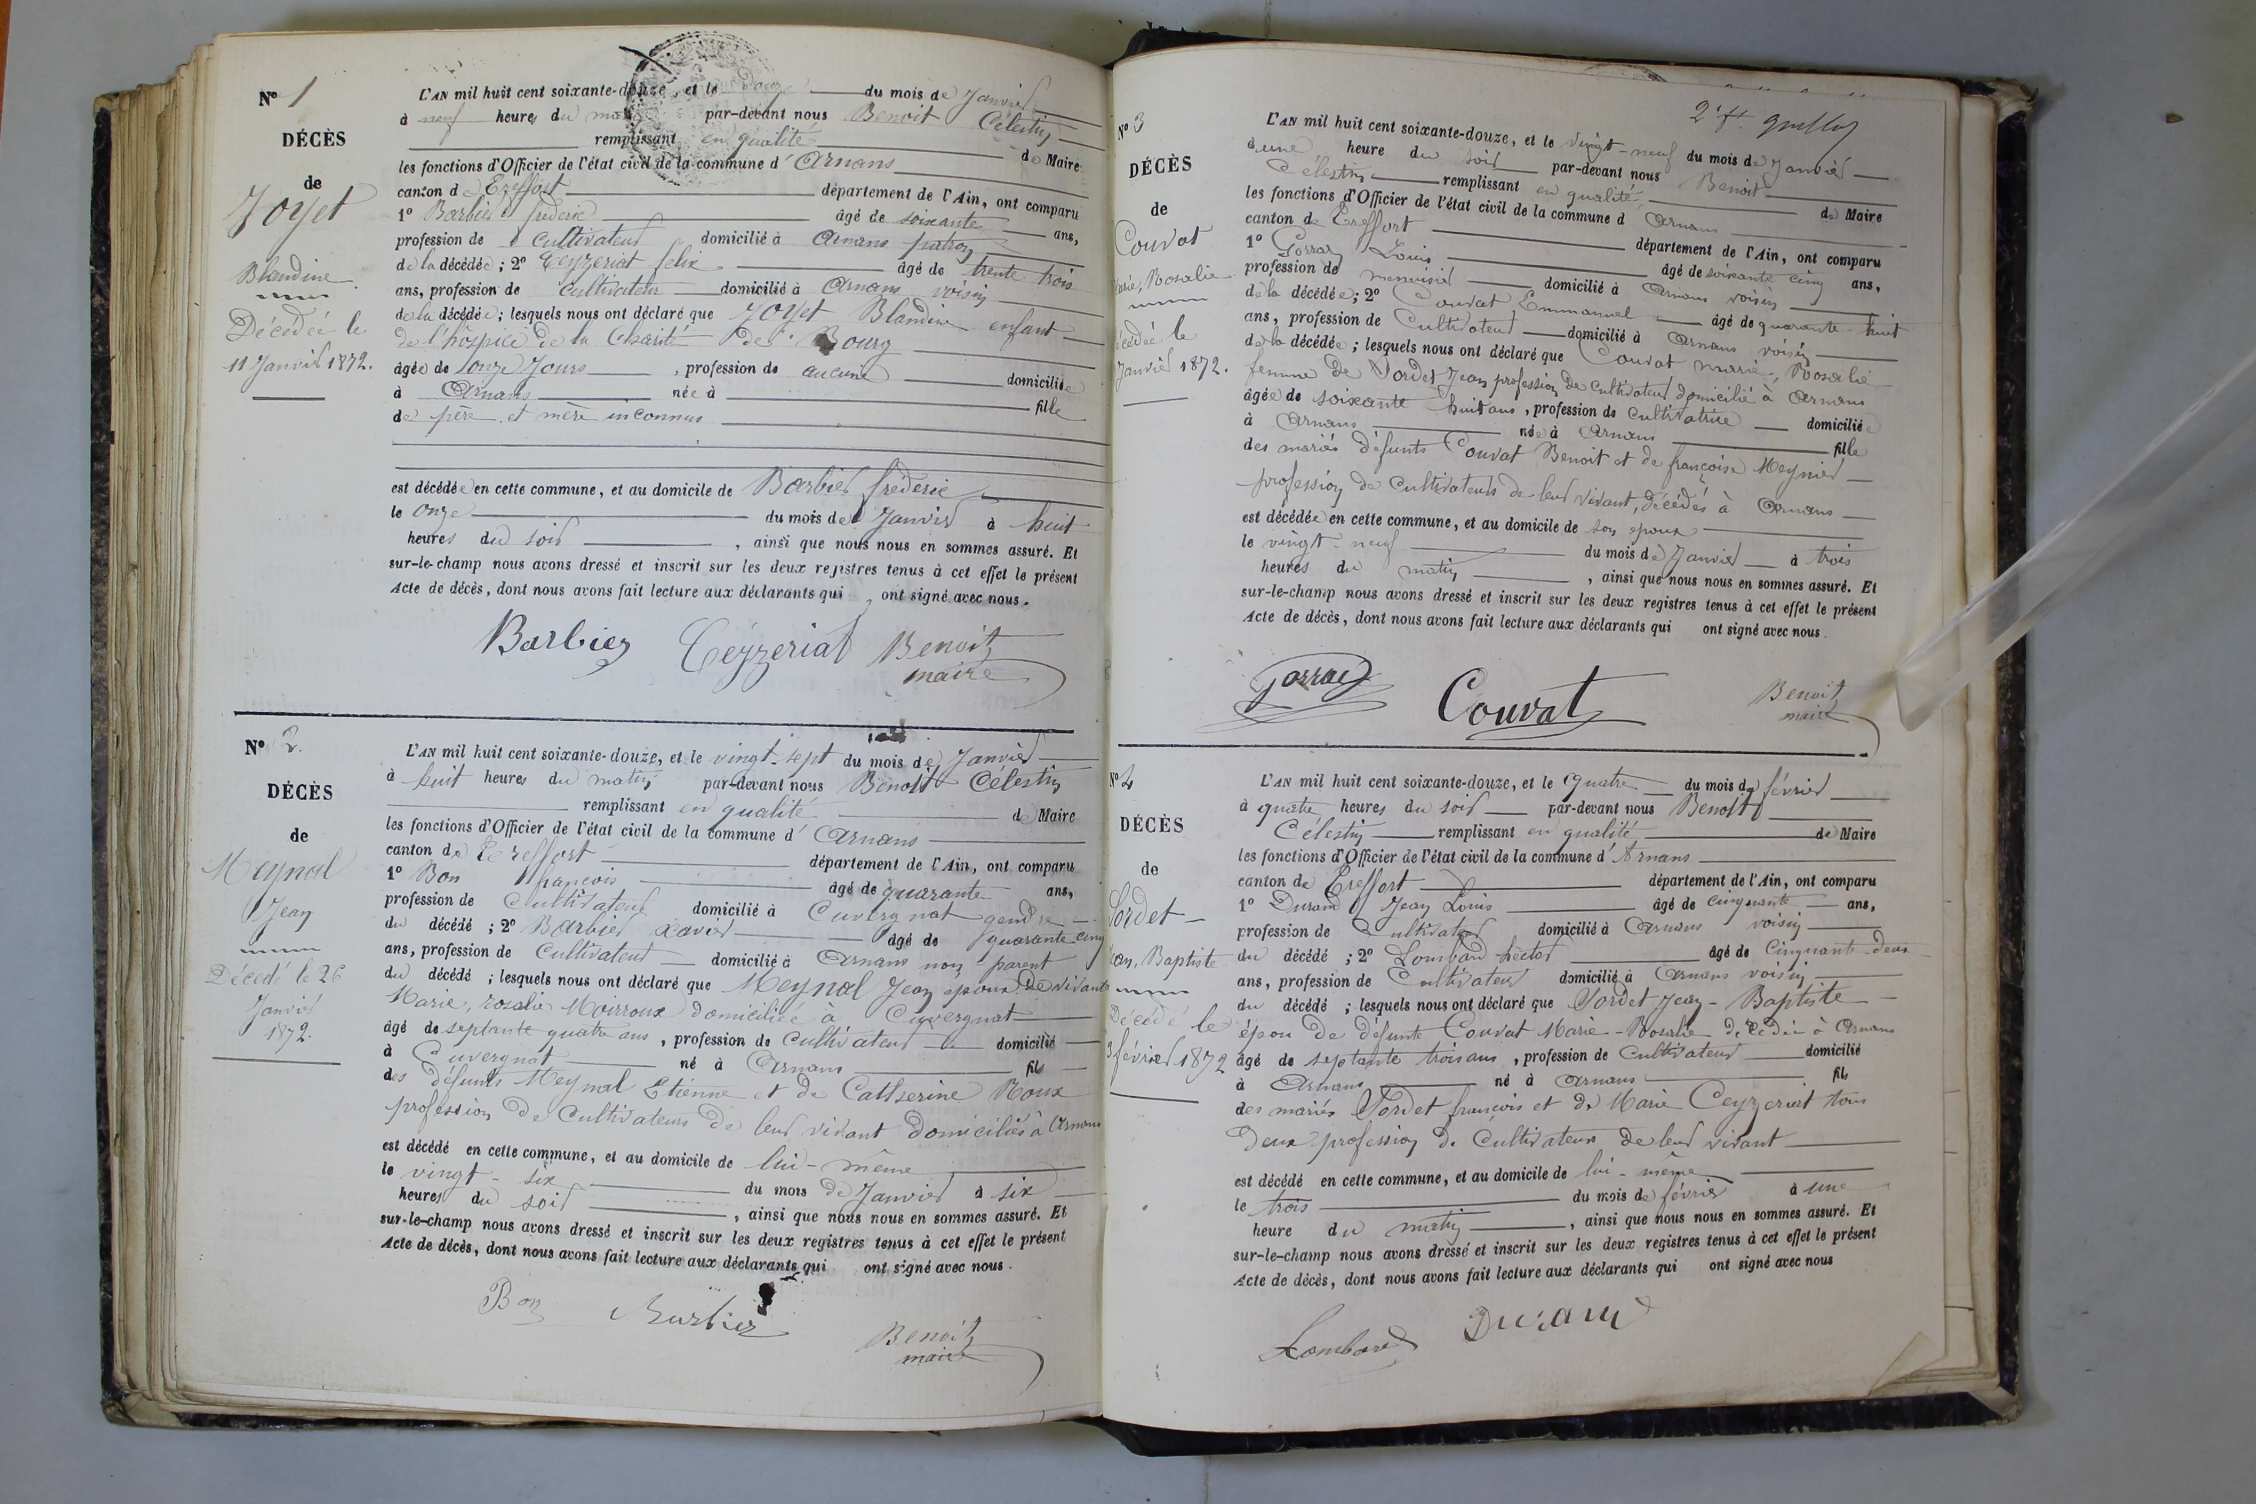 N° 1
DÉCÈS
de
Joyet
Blandine
Décédée le
11 Janvier 1872.
L'AN mil huit cent soixante-douze, et le Douze du mois de Janvier
à neuf heures du matin par-devant nous Benoit Célestin
remplissant en qualité de Maire
les fonctions d'Officier de l'état civil de la commune d'Arnans
canton de Treffort département de l'Ain, ont comparu
1° Barbier frédéric âgé de soixante ans,
profession de Cultivateur domicilié à Arnans patron
de la décédée; 2° Ceyzeriat felix âgé de trente trois
ans, profession de cultivateur domicilié à Arnans voisin
de la décédée; lesquels nous ont déclaré que Joyet Blandine enfant
de l'hospice de la Charité de Bourg
âgée de onze Jours, profession de aucune domiciliée
à Arnans née à fille
de père et mère inconnus
est décédée en cette commune, et au domicile de Barbier fréderic
le onze du mois de Janvier à huit
heures du soir, ainsi que nous nous en sommes assuré. Et
sur-le-champ nous avons dressé et inscrit sur les deux registres tenus à cet effet le présent
Acte de décès, dont nous avons fait lecture aux déclarants qui ont signé avec nous.
Barbier Ceyzeriat Benoit
maire
N° 2.
DÉCÈS
de
Meynal
Jean
Décédé le 26
Janvier
1872.
L'AN mil huit cent soixante-douze, et le vingt-sept du mois de Janvier
à huit heures du matin par-devant nous Benoit Célestin
remplissant en qualité de Maire
les fonctions d'Officier de l'état civil de la commune d'Arnans
canton de Treffort département de l'Ain, ont comparu
1° Bon françois âgé de quarante ans,
profession de Cultivateur domicilié à Cuvergnat gendre
du décédé; 2° Barbier Xavier âgé de quarante cinq
ans, profession de Cultivateur domicilié à Arnans non parent
du décédé; lesquels nous ont déclaré que Meynal Jean époux de vivante
Marie, rosalie Moirroux domiciliée à Cuvergnat
âgé de septante quatre ans, profession de Cultivateur domicilié
à Cuvergnat né à Arnans fils
des défunts Meynal Etienne et de Catherine Roux
profession de Cultivateurs de leur vivant domiciliés à Arnans
est décédé en cette commune, et au domicile de lui-même
le vingt-six du mois de Janvier à six
heures du soir, ainsi que nous nous en sommes assuré. Et
sur-le-champ nous avons dressé et inscrit sur les deux registres tenus à cet effet le présent
Acte de décès, dont nous avons fait lecture aux déclarants qui ont signé avec nous.
Bon Barbier Benoit
maire
N° 3
DÉCÈS
de
Couvat
Marie, Rosalie
décédée le
Janvier 1872.
L'AN mil huit cent soixante-douze, et le vingt-neuf du mois de Janvier
à une heure du soir par-devant nous Benoit
Célestin remplissant en qualité de Maire
les fonctions d'Officier de l'état civil de la commune d Arnans
canton de Treffort département de l'Ain, ont comparu
1° Gorraz Louis âgé de soixante cinq ans,
profession de menuisier domicilié à Arnans voisin
de la décédée; 2° Couvat Emmanuel âgé de quarante-huit
ans, profession de Cultivateur domicilié à Arnans voisin
de la décédée; lesquels nous ont déclaré que Couvat marie, Rosalie
femme de Sordet Jean profession de cultivateur domicilié à Arnans
âgée de soixante huit ans, profession de Cultivatrice domiciliée
à Arnans née à Arnans fille
des mariés défunts Couvat Benoit et de françoise Meynier
profession de Cultivateurs de leur vivant, décédés à Arnans
est décédée en cette commune, et au domicile de son époux
le vingt-neuf du mois de Janvier à trois
heures du matin, ainsi que nous nous en sommes assuré. Et
sur-le-champ nous avons dressé et inscrit sur les deux registres tenus à cet effet le présent
Acte de décès, dont nous avons fait lecture aux déclarants qui ont signé avec nous.
Gorraz Couvat Benoit
maire
N° 4
DÉCÈS
de
Sordet
Jean, Baptiste
Décédé le
3 février 1872
L'AN mil huit cent soixante-douze, et le quatre du mois de février
à quatre heures du soir par-devant nous Benoit
Célestin remplissant en qualité de Maire
les fonctions d'Officier de l'état civil de la commune d'Arnans
canton de Treffort département de l'Ain, ont comparu
1° Durand Jean Louis âgé de cinquante ans,
profession de Cultivateur domicilié à Arnans voisin
du décédé; 2° Lombard hector âgé de Cinquante-deux
ans, profession de Cultivateur domicilié à Arnans voisin
du décédé; lesquels nous ont déclaré que Sordet Jean-Baptiste
époux de défunte Couvat Marie-Rosalie décédée à Arnans
âgé de septante trois ans, profession de Cultivateur domicilié
à Arnans né à Arnans fils
des mariés Sordet françois et de Marie Ceyzeriat tous
deux profession de Cultivateurs de leur vivant
est décédé en cette commune, et au domicile de lui-même
le trois du mois de février à une
heure du matin, ainsi que nous nous en sommes assuré. Et
sur-le-champ nous avons dressé et inscrit sur les deux registres tenus à cet effet le présent
Acte de décès, dont nous avons fait lecture aux déclarants qui ont signé avec nous
Lombard Durand